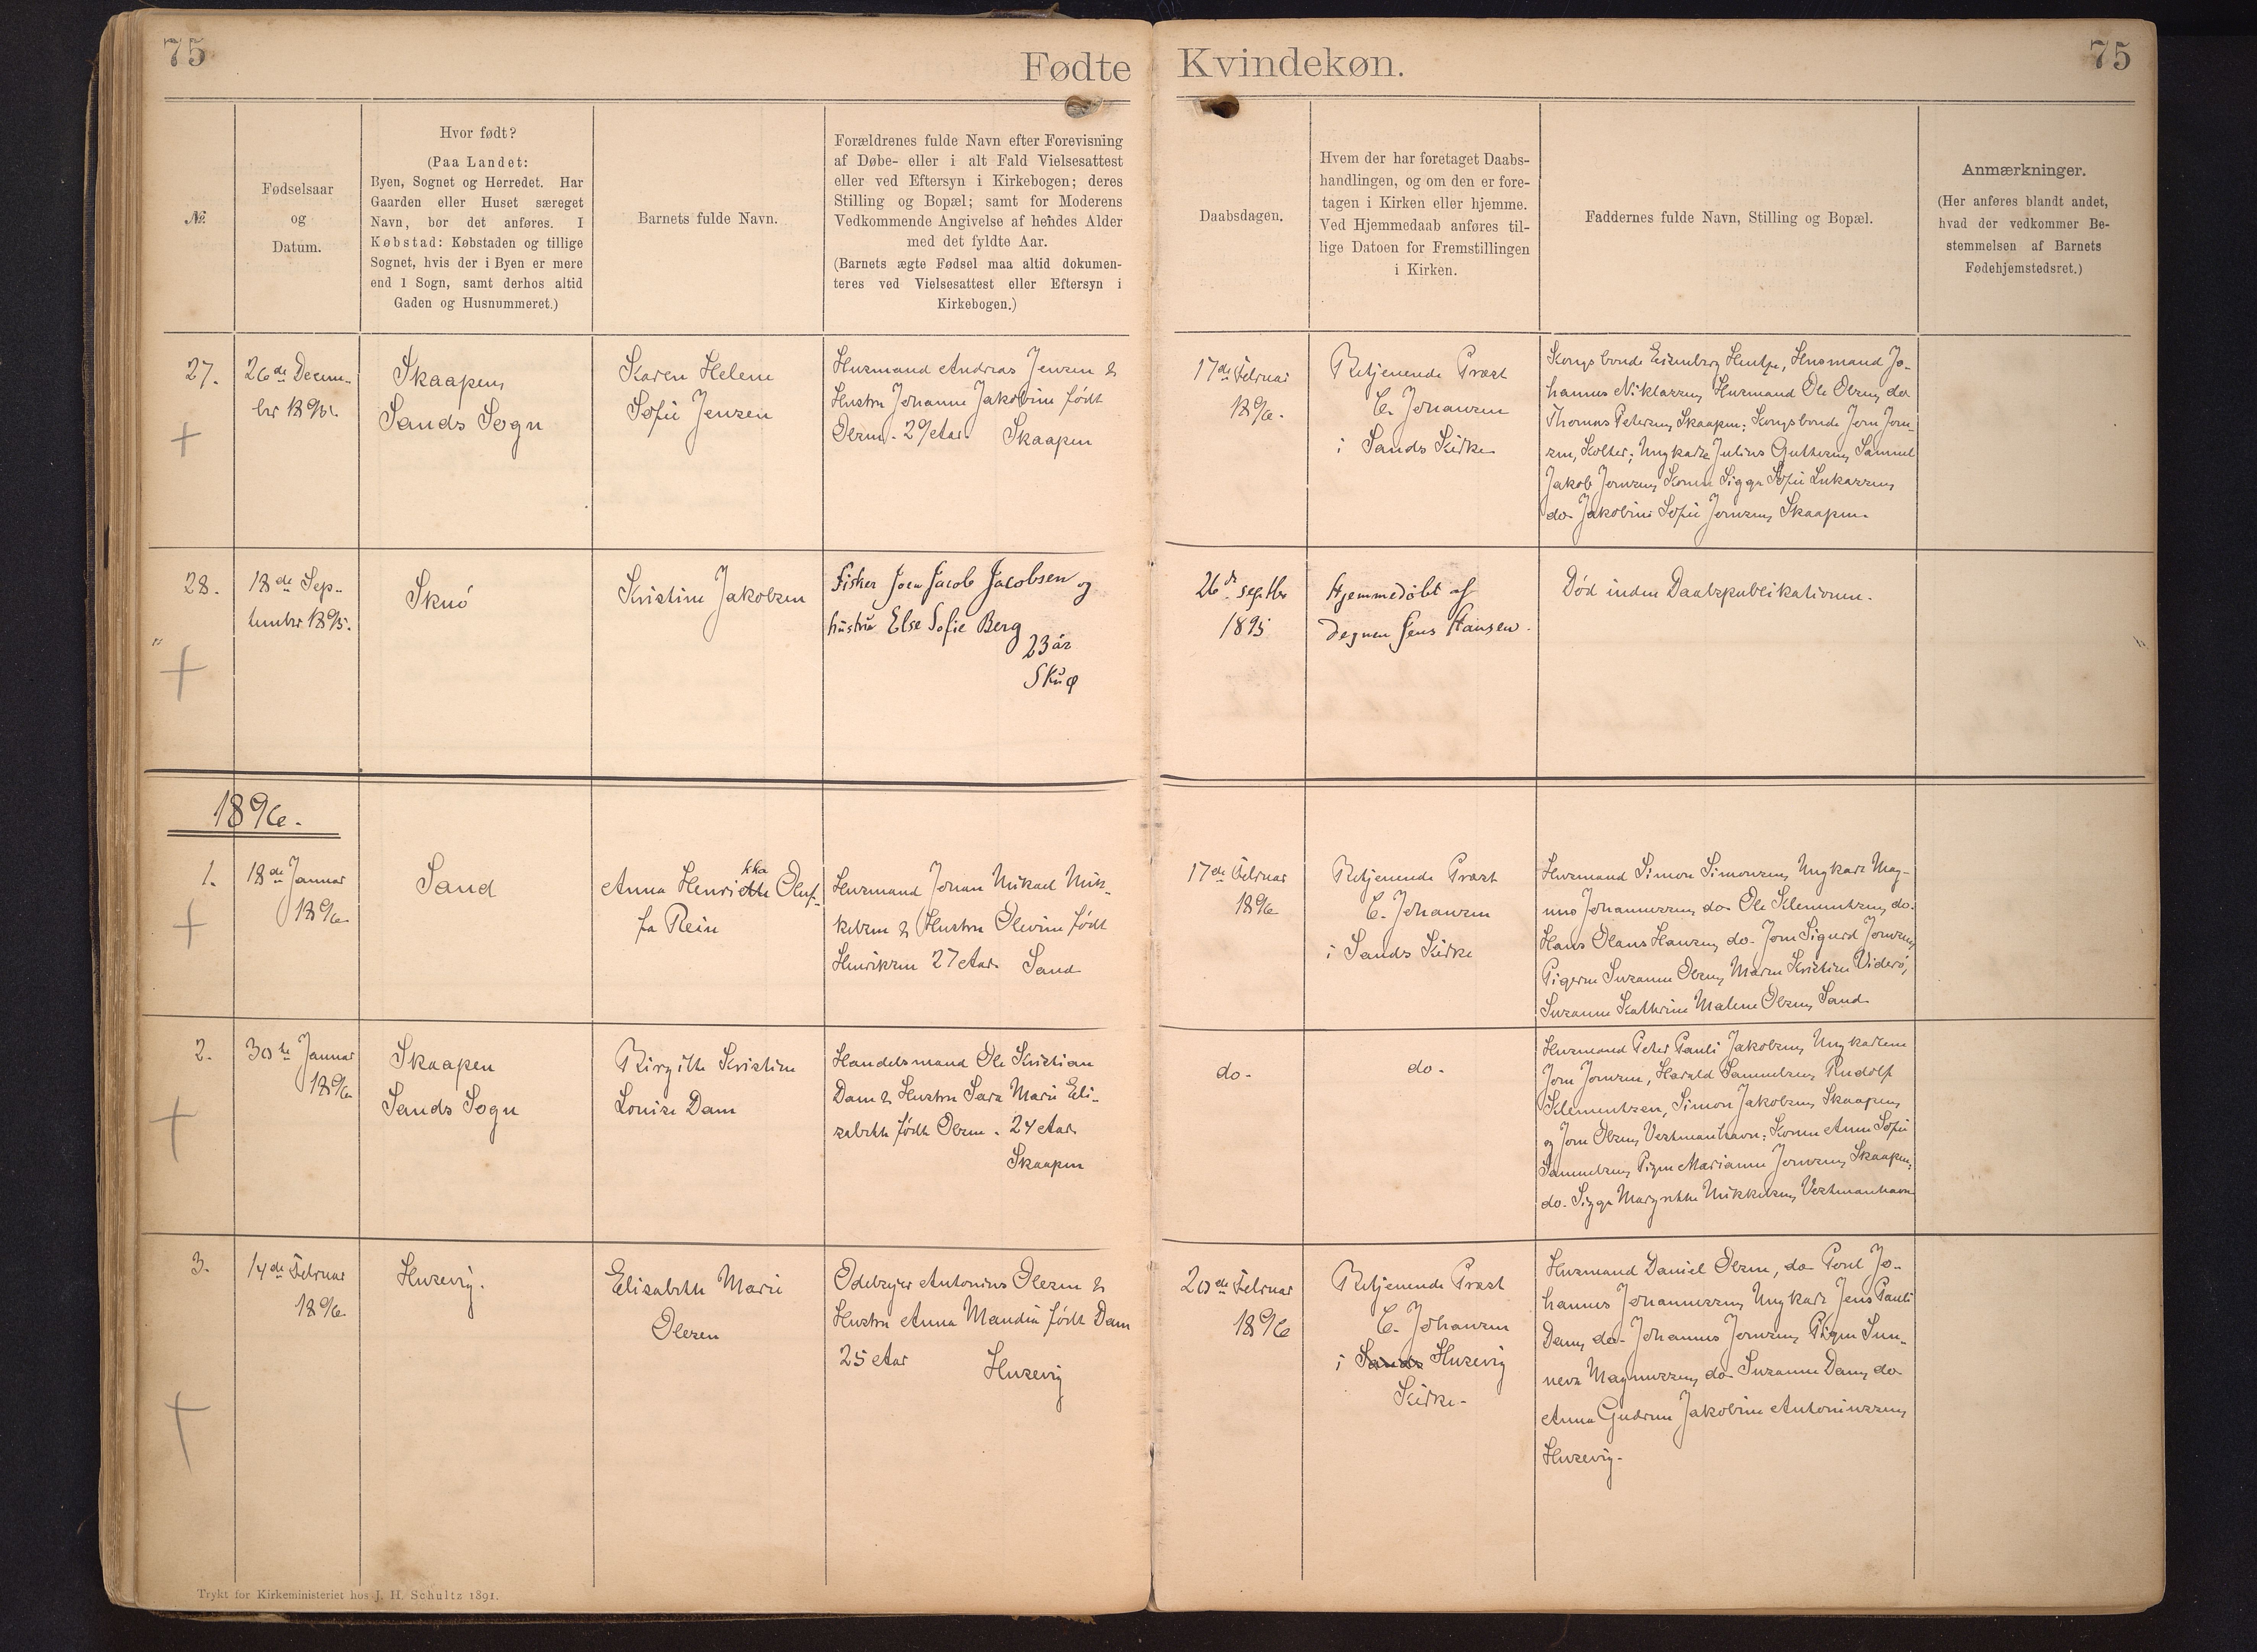 75
Fødte
Kvindekøn.
75
№
Fødselsaar
og
Datum.
Hvor født?
(Paa Landet:
Byen, Sognet og Herredet. Har
Gaarden eller Huset særeget
Navn, bør det anføres. I
Købstad: Købstaden og tillige
Sognet, hvis der i Byen er mere
end 1 Sogn, samt derhos altid
Gaden og Husnummeret.)
Barnets fulde Navn.
Forældrenes fulde Navn efter Forevisning
af Døbe- eller i alt Fald Vielsesattest
eller ved Eftersyn i Kirkebogen; deres
Stilling og Bopæl; samt for Moderens
Vedkommende Angivelse af hendes Alder
med det fyldte Aar.
(Barnets ægte Fødsel maa altid dokumen-
teres ved Vielsesattest eller Eftersyn i
Kirkebogen.)
Daabsdagen.
Hvem der har foretaget Daabs-
handlingen, og om den er fore-
tagen i Kirken eller hjemme.
Ved Hjemmedaab anføres til-
lige Datoen for Fremstillingen
i Kirken.
Faddernes fulde Navn, Stilling og Bopæl.
Anmærkninger.
(Her anføres blandt andet,
hvad der vedkommer Be-
stemmelsen af Barnets
Fødehjemstedsret.)
27.
26de Decem-
ber 1895.
Skaapen,
Sands Sogn
Karen Helene
Sofie Jensen
Husmand Andreas Jensen &
Hustru Johanne Jakobine født
Olsen. 29 Aar. Skaapen
17de Februar
1896.
Betjenende Præst
C. Johansen
i Sands Kirke
Kongsbonde Eisenberg Hentze, Husmand Jo-
hannes Niklassen, Husmand Ole Olsen, do
Thomas Petersen, Skaapen; Kongsbonde Joen Joen-
sen, Kolter; Ungkarle Julius Guttesen, Samuel
Jakob Joensen, Kone Sigga Sofie Lukassen,
do. Jakobine Sofie Joensen, Skaapen.
28.
18de Sep-
tember 1895.
Skuö
Kristine Jakobsen
Fisker Joen Jacob Jacobsen og
hustru Else Sofie Berg
23 år
Skuø
26de septbr
1895
Hjemmedöbt af
Degnen Jens Hansen.
Död inden Daabspublikationen.
1896.
1.
18de Januar
1896
Sand
kka
Anna Henriette Oluf-
fa Rein
Husmand Johan Mikael Mik-
kelsen & Hustru Olevine født
Henriksen 27 Aar. Sand
17de Februar
1896
Betjenende Præst
C. Johansen
i Sands Kirke
Husmand Simon Simonsen, Ungkarle Mag-
nus Johannessen, do Ole Klementsen, do.
Hans Olaus Hansen, do. Joen Sigurd Joensen,
Pigerne Susanne Olsen, Maren Kristine Viderö,
Susanne Kathrine Malene Olsen, Sand
2.
30te Januar
1896
Skaapen
Sands Sogn
Birgitte Kristine
Louise Dam
Handelsmand Ole Kristian
Dam & Hustru Sara Marie Eli-
sabeth født Olsen. 24 Aar.
Skaapen
do.
do.
Husmand Peter Pauli Jakobsen, Ungkarlene
Joen Joensen, Harald Samuelsen, Rudolf
Klementsen, Simon Jakobsen, Skaapen,
og Joen Olsen, Vestmanhavn; Konen Anne Sofie
Samuelsen, Pigen Marianne Joensen, Skaapen,
do. Sigga Margrethe Mikkelsen, Vestmanhavn
3.
14de Februar
1896.
Husevig.
Elisabeth Marie
Olesen
Odelsejer Antonius Olesen &
Hustru Anna Maudia født Dam
25 Aar
Husevig
20de Februar
1896
Betjenende Præst
C. Johansen
i Sands Husevig
Kirke.
Husmand Daniel Olsen, do Poul Jo-
hannes Johannessen, Ungkarle Jens Pauli
Dam, do. Johannes Joensen, Pigen Sun-
neva Magnussen, do. Susanne Dam, do
Anna Gudrun Jakobine Antoniussen,
Husevig.
Trykt for Kirkeministeriet hos J. H. Schultz 1891.